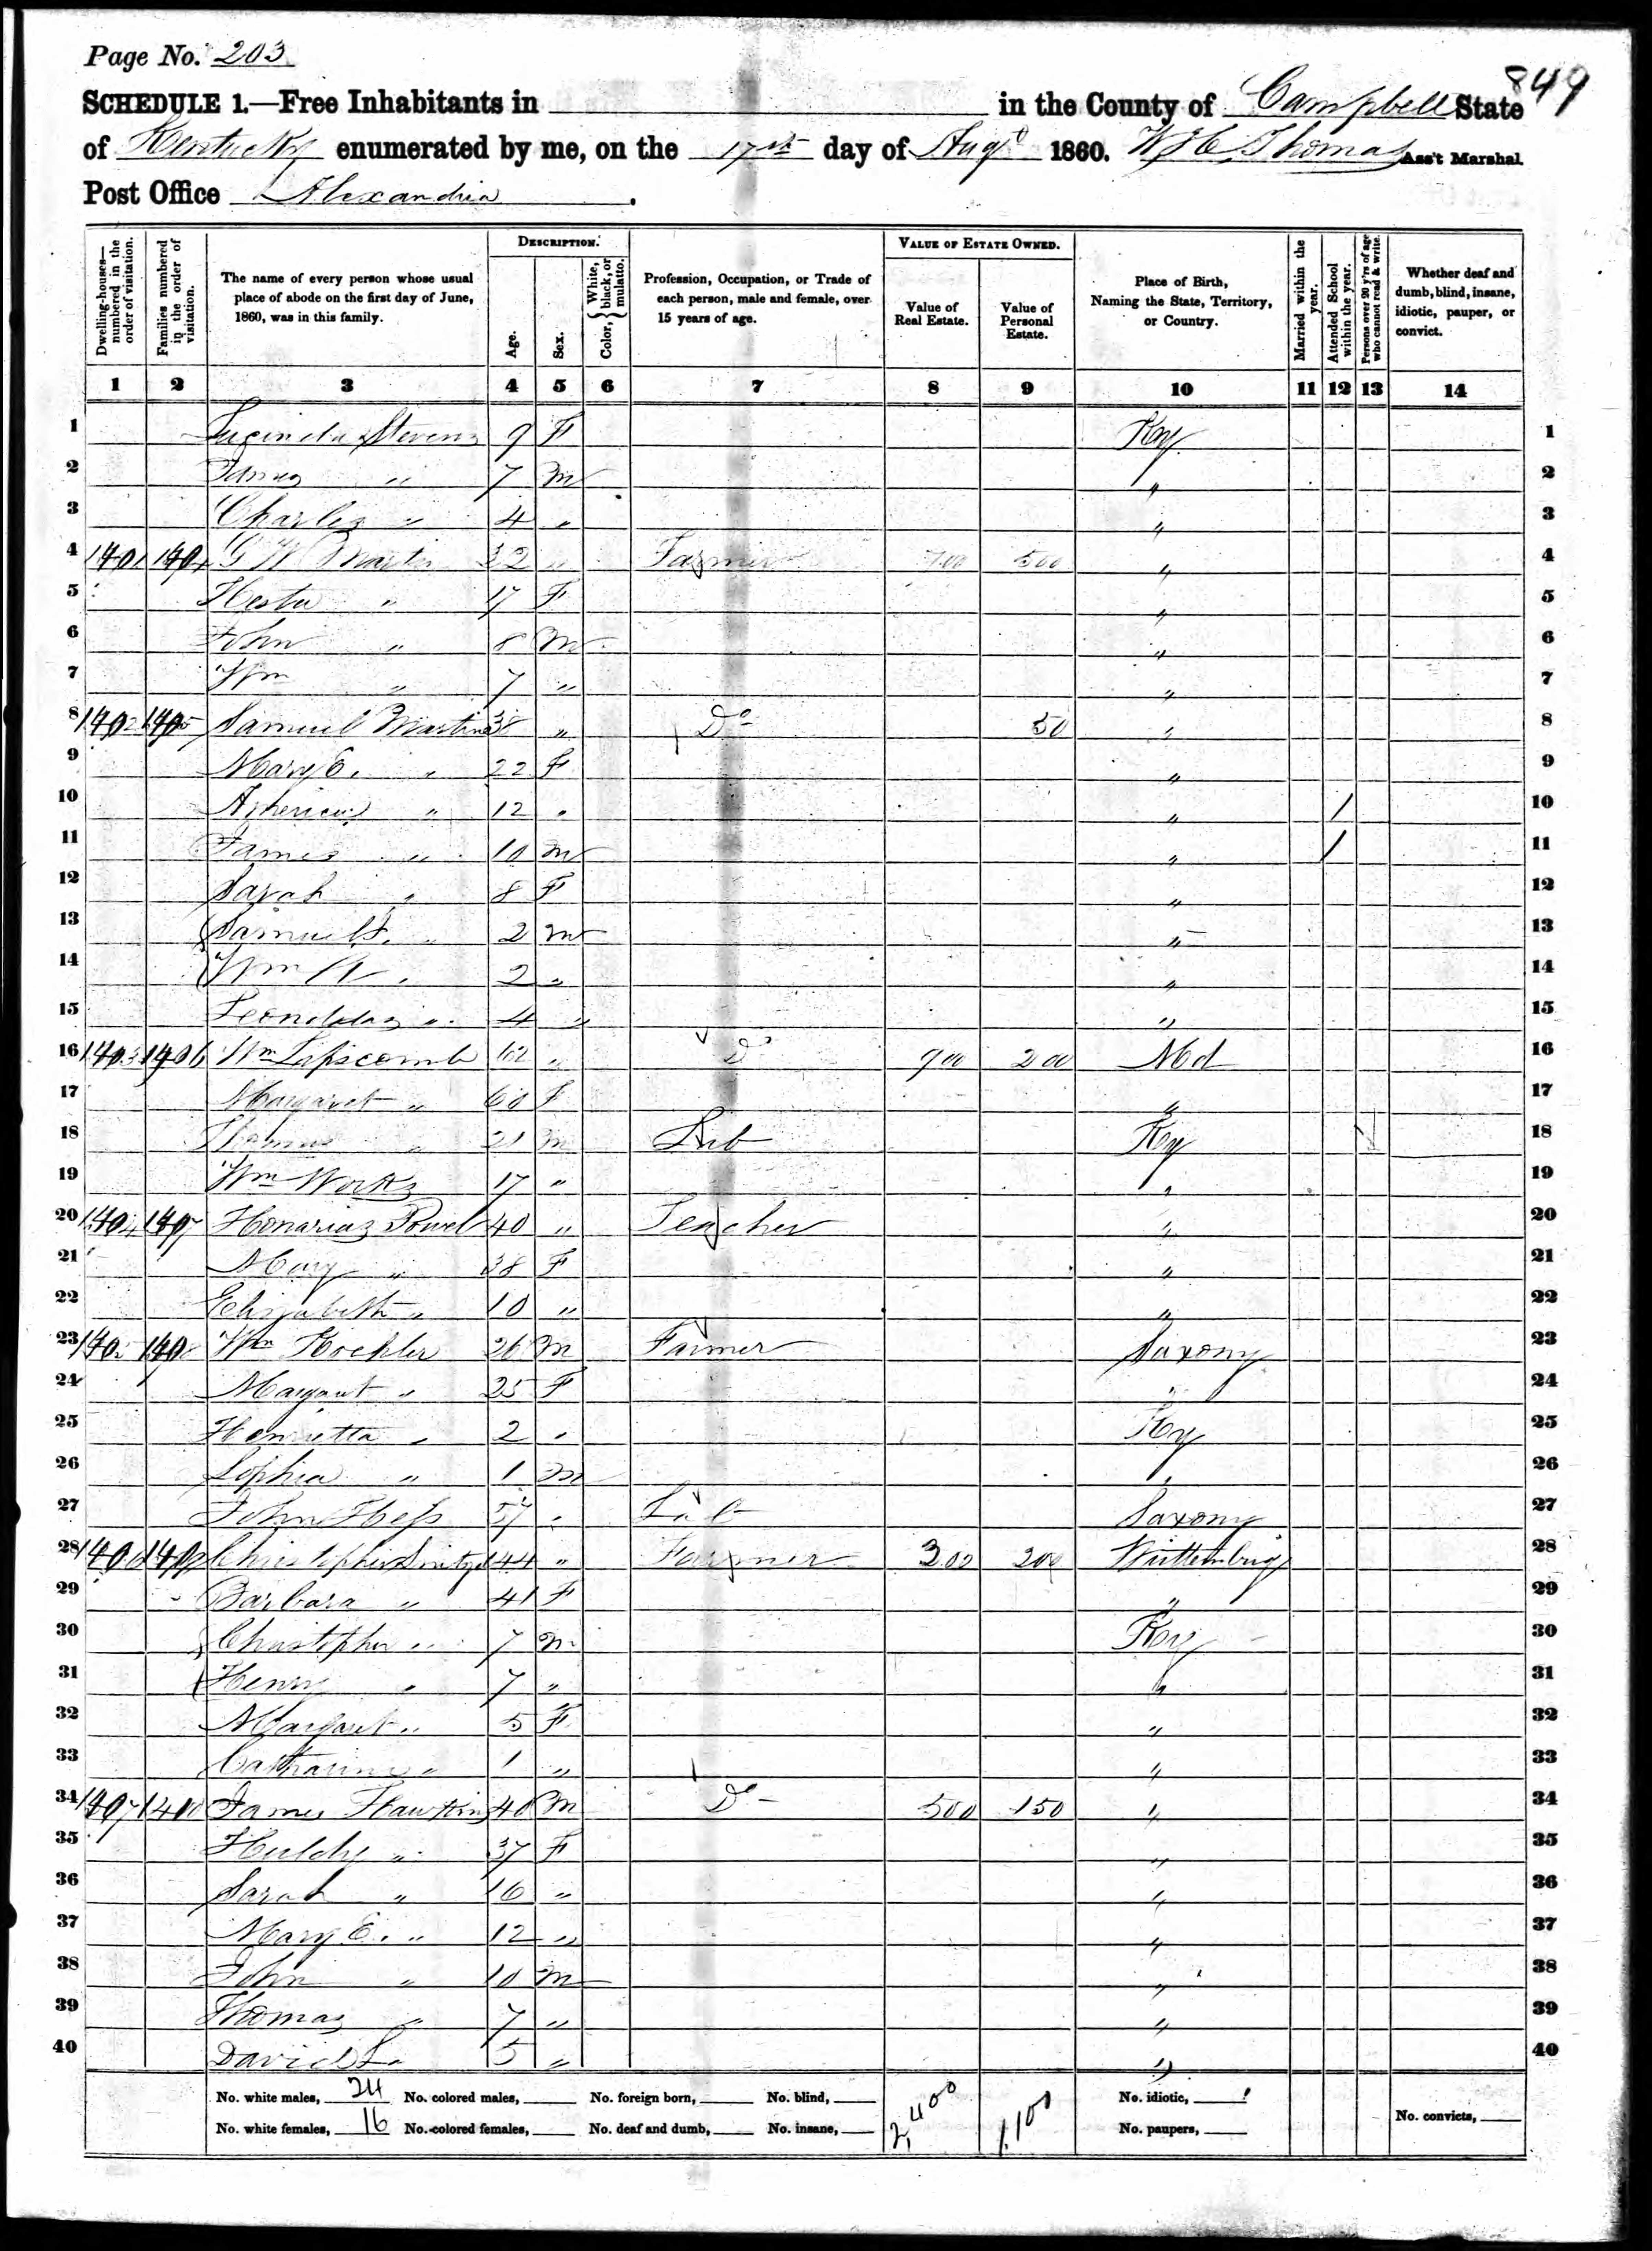 Page No. 203
849
SCHEDULE 1.—Free Inhabitants in in the County of Campbell State
of Kentucky enumerated by me, on the 17th day of Augt 1860. W H C Thomas Ass't Marshal.
Post Office Alexandria .
Dwelling-houses—numbered in the order of visitation. Families numbered in the order of visitation. The name of every person whose usual place of abode on the first day of June, 1860, was in this family. DESCRIPTION. Age. Sex. Color, {White, black, or mulatto. Profession, Occupation, or Trade of each person, male and female, over 15 years of age. VALUE OF ESTATE OWNED. Value of Real Estate. Value of Personal Estate. Place of Birth, Naming the State, Territory, or Country. Married within the year. Attended School within the year. Persons over 20 y'rs of age who cannot read & write. Whether deaf and dumb, blind, insane, idiotic, pauper, or convict.
1 2 3 4 5 6 7 8 9 10 11 12 13 14
1 Lucinda Stevens 9 F Ky 1
2 James " 7 m " 2
3 Charles " 4 " " 3
4 1401 1404 G W Martin 32 " Farmer 700 500 " 4
5 Hester " 17 F " 5
6 John " 8 m " 6
7 Wm " 7 " " 7
8 1402 1405 Samuel Martin 38 " Do 50 " 8
9 Mary E. " 22 F " 9
10 America " 12 " " / 10
11 James " 10 m " / 11
12 Sarah " 8 F " 12
13 Samuel F. " 2 m " 13
14 Wm " 2 " " 14
15 Leonidas " 4 " " 15
16 1403 1406 Wm Lipscomb 62 " Do 900 200 Md 16
17 Margaret " 60 F " 17
18 Thomas " 21 m Lab Ky / 18
19 Wm Works 17 " " 19
20 1404 1407 Honarius Powel 40 " Teacher " 20
21 Mary " 38 F " 21
22 Elizabeth " 10 " " 22
23 1405 1408 Wm Koehler 26 m Farmer Saxony 23
24 Margaret " 25 F " 24
25 Henrietta " 2 " Ky 25
26 Sophia " 1 m " 26
27 John Hess 54 " Lab Saxony 27
28 1406 1409 Christopher 44 " Farmer 300 200 Wurttemburg 28
29 Barbara " 41 F " 29
30 Christopher " 7 m Ky 30
31 Henry " 7 " " 31
32 Margaret " 5 F " 32
33 Catharine " 1 " " 33
34 1407 1410 James Hawkins 40 m Do 500 150 " 34
35 Huldy " 37 F " 35
36 Sarah " 16 " " 36
37 Mary E. " 12 " " 37
38 John " 10 m " 38
39 Thomas " 7 " " 39
40 David L " 5 " " 40
No. white males, 24 No. colored males, No. foreign born, No. blind, 2,400 1,100 No. idiotic,
No. white females, 16 No. colored females, No. deaf and dumb, No. insane, No. paupers, No. convicts,